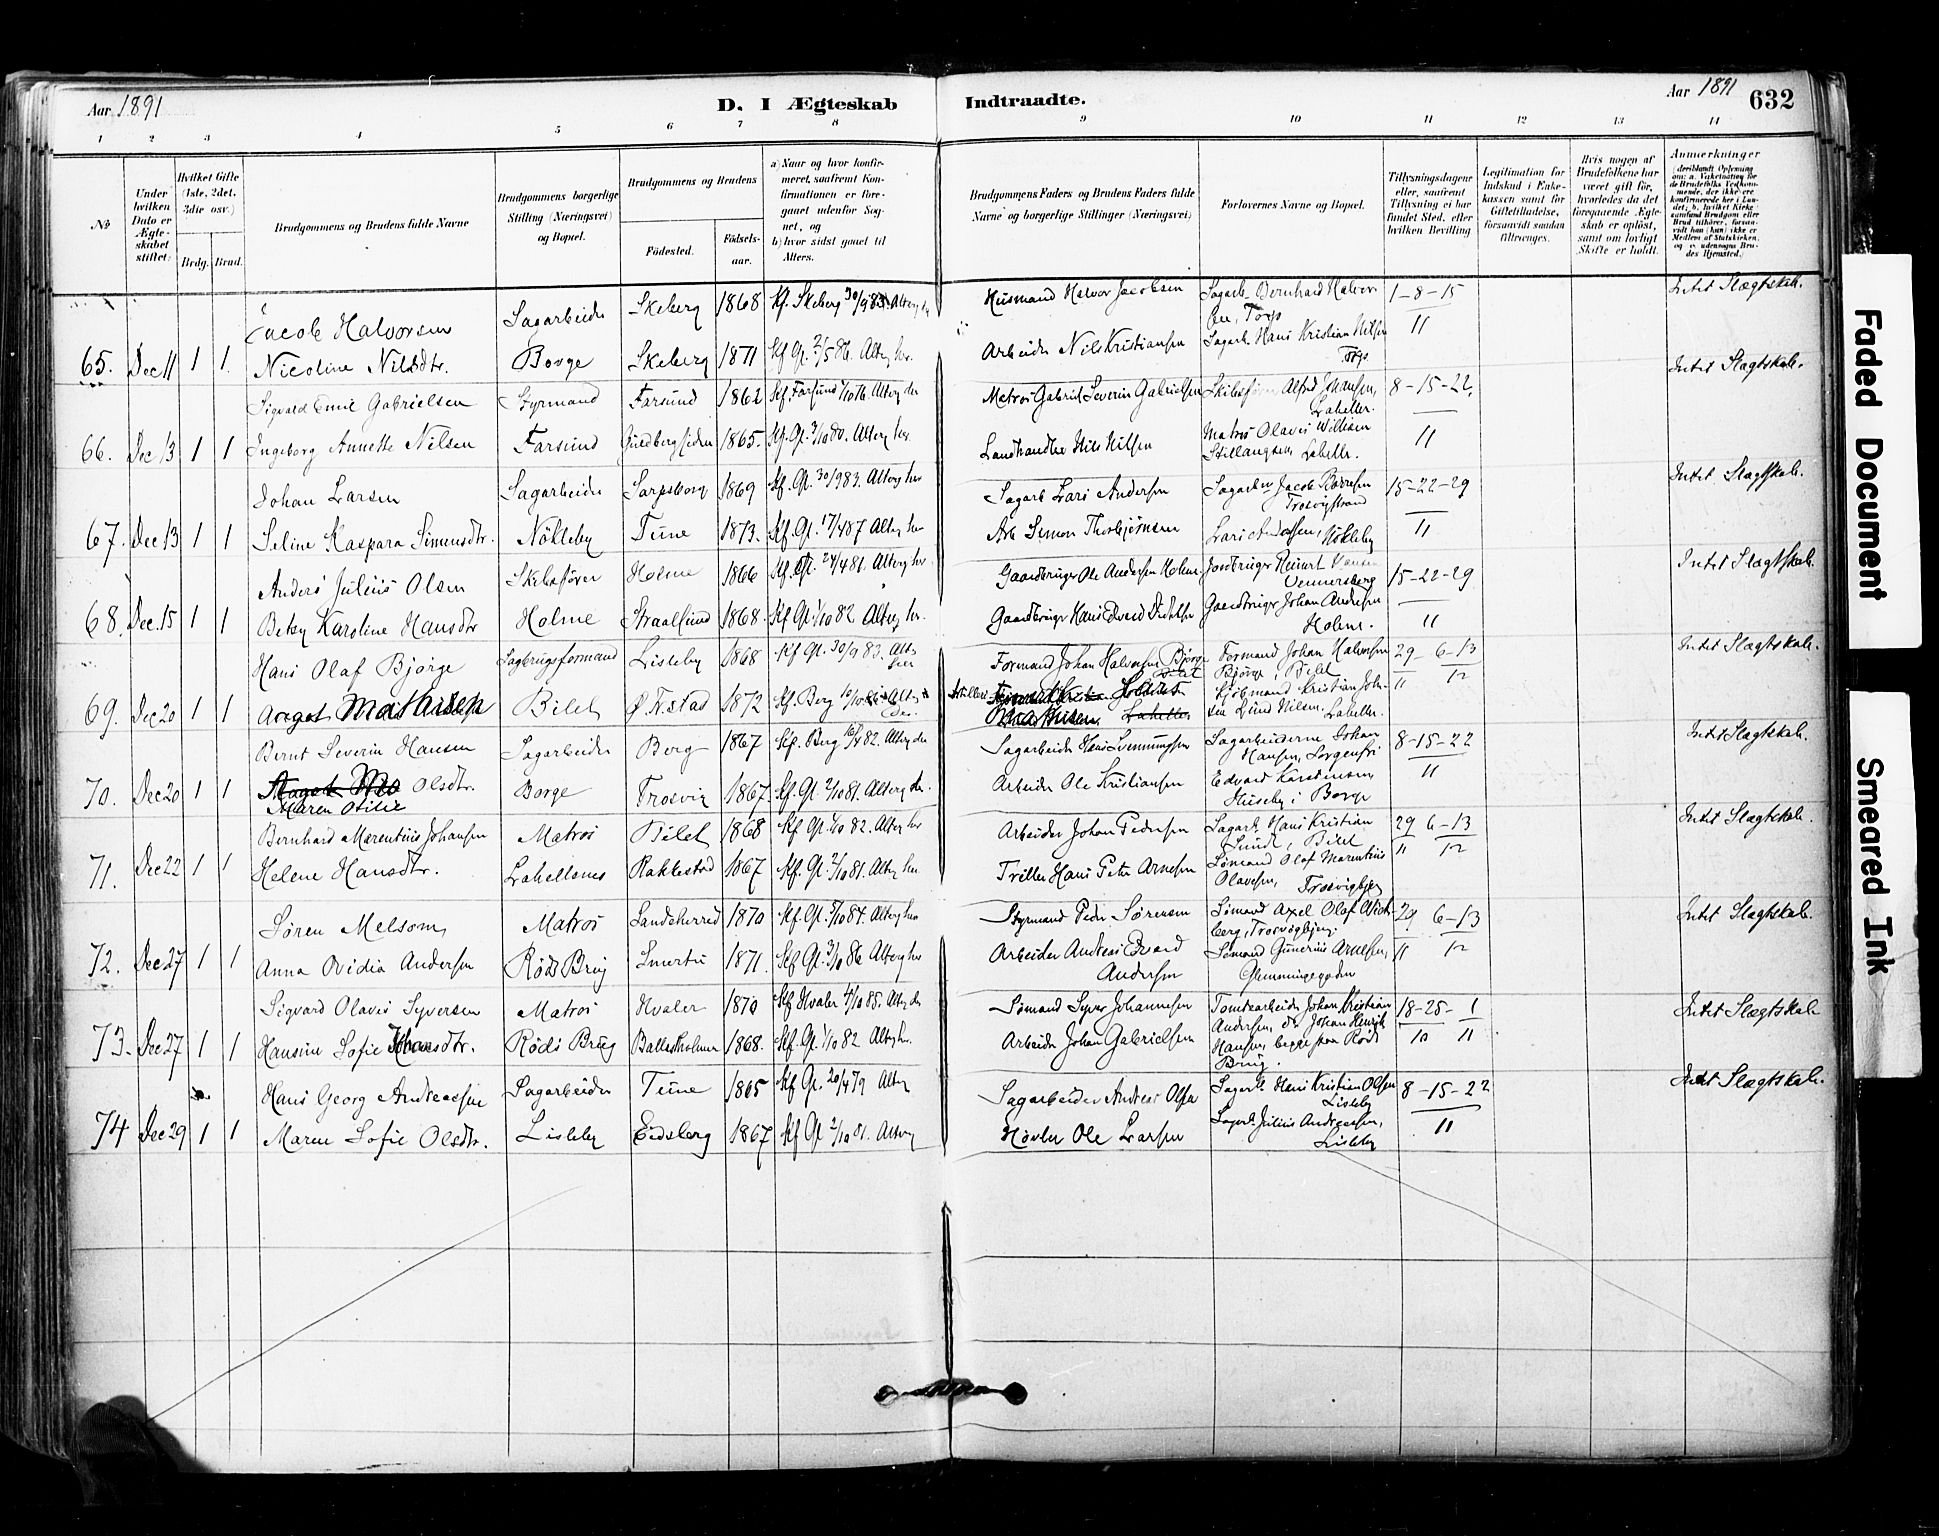 Aar 1891 D. I Ægteskab Indtraadte. Aar 1891 632
1 2 3 4 5 6 7 8 9 10 11 12 13 14
№
Under hvilken Dato er Ægteskabet stiftet.
Hvilket Gifte (1ste, 2det, 3die osv.)
Brdg. Brud.
Brudgommens og Brudens fulde Navne
Brudgommens borgerlige Stilling (Næringsvei) og Bopæl.
Brudgommens og Brudens
Fødested. Fødsels-aar.
a) Naar og hvor konfirmeret, saafremt Konfirmationen er foregaaet udenfor Sognet, og
b) hvor sidst gaaet til Alters.
Brudgommens Faders og Brudens Faders fulde Navne og borgerlige Stillinger (Næringsvei)
Forlovernes Navne og Bopæl.
Tillysningsdagene eller, saafremt Tillysning ei har fundet Sted, efter hvilken Bevilling
Legitimation for Indskud i Enkekassen samt for Giftetilladelse, forsaavidt saadan tiltrænges.
Hvis nogen af Brudefolkene har været gift før, hvorledes da det foregaaende Ægteskab er opløst, samt om lovligt Skifte er holdt.
Anmerkninger
Jacob Halvorsen Sagarbeider Skeberg 1868 Kf. Skeberg 30/9 83 Husmand Halvor Jacobsen Sagarb. Bernhard Halvorsen, Torp 1-8-15 Intet Slægtskab.
65. Dec 11 1 1. Nicoline Nilsdtr. Borge Skeberg 1871 Kf. Gl. 2/5 86. Alterg. her. Arbeider Nils Kristiansen Sagarb. Hans Kristian Nilsen Torp 11
Sigvard Emil Gabrielsen Styrmand Farsund 1862 Kf. Farsund 1/10 76. Alterg. der Matros Gabriel Severin Gabrielsen Alfred Johansen, Lahelle. 8-15-22, Intet Slægtskab.
66. Dec 13 1 1 Ingeborg Annette Nilsen Farsund 1865. Kf. Gl. 3/10 80. Alterg. her. Landhandler Nils Nilsen Matros Olaves William Lahelle. 11
Johan Larsen Sagarbeider Sarpsborg 1869 Kf. Gl. 30/9 83. Alterg. her Sagarb. Lars Andersen Sagarb. Jacob Trosvigstrand 15-22-29 Intet Slægtskab.
67. Dec 13 1 1 Seline Kaspara Simensdtr. Nökleby Tune 1873. Kf. Gl. 17/4 87 Alterg. her Arb. Simen Thorbjørnsen Nökleby 11
Anders Julius Olsen Skibsfører Holme 1866 Kf. Gl. 24/4 81. Alterg. her Gaardbruger Ole Andersen Holme. Jordbruger 15-22-29 Intet Slægtskab.
68. Dec. 15 1 1 Betsy Karoline Hansdtr Holme Straalsund 1868. Kf. Gl. 1/10 82. Alterg. her. Gaardbruger Hans Edvard Gaardbruger Johan Andersen Holme. 11
Hans Olaf Bjørge Sagbrugsformand Lisleby 1868 Kf. Gl. 30/9 83. Alterg. her Formand Johan Halvorsen Bjørge Bilet Formand Johan Halvorsen Bjørge, Bilet 29 6-13 Intet Slægtskab.
69. Dec 20 1 1 Aagot Mathisen Bilet Ø. F.stad 1872 Kf. Berg Mathisen. Lahelle Kjøbmand Kristian Johansen Lund Nilsen. Lahelle. 11 12
Bernt Severin Hansen Sagarbeider Berg 1867 Kf. Berg 82. Alterg. der Sagarbeider Hans Svenningsen Sagarbeiderne Johan Hansen, Sorgenfri 8-15-22 Intet Slægtskab.
70. Dec 20 1 1 Olsdtr. Borge Trosvig 1867. Kf. Gl. 2/10 81. Alterg. der. Arbeider Ole Kristiansen Edvard Karstensen, Huseby i Borge 11
Maren Otilie
Bernhard Marentius Johansen Matros Bilet 1868 Kf. Gl. 1/10 82. Alterg. her Arbeider Johan Pedersen Sagarb. Hans Kristian Lund, Bilet 29 6-13 Intet Slægtskab.
71. Dec 22 1 1 Helene Hansdtr. Lahellsnes Rakkestad 1867 Kf. Gl. 2/10 81. Alterg. her Triller Hans Peter Arnesen Sømand Olaf Marentius Olavesen, Trosvigbjerg 11 12
Søren Melsom Matros Sandeherred 1870 Kf. Gl. 5/10 84. Alterg. her Styrmand Peder Sørensen Sømand Axel Olaf Wichberg, Trosvigbjerg. 29 6-13 Intet Slægtskab.
72. Dec 27 1 1 Anna Ovidia Andersen Röds Brug 1871. Kf. Gl. 3/10 86 Alterg. her Arbeider Andreas Edvard Andersen Sømand Gunerius Arnesen, Glemmingegaden 11 12
Sigvard Olaves Syversen Matros Hvaler 1870 Kf. Hvaler 4/10 85. Alterg. der Sømand Syver Johannesen Tomtearbeider Johan Kristian Andersen, do Johan Henrik 18-25-1 Intet Slægtskab
73. Dec 27 1 1 Hansine Sofie Johansdtr. Röds Brug 1868. Kf. Gl. 1/10 82 Alterg. her. Arbeider Johan Gabrielsen Hansen, begge paa Röds Brug. 10 11
Hans Georg Andreassen Sagarbeider Tune 1865 Kf. Gl. 20/4 79 Alterg. Sagarbeider Andreas Olsen Sagarb. Hans Kristian Olsen Lisleby 8-15-22 Intet Slægtskab.
74 Dec 29 1 1 Maren Sofie Olsdtr. Lisleby Eidsberg 1867 Kf. Gl. 2/10 81. Alterg. Høvler Ole Larsen Sagarb. Julius Andreassen, Lisleby 11
Faded Document
Smeared Ink